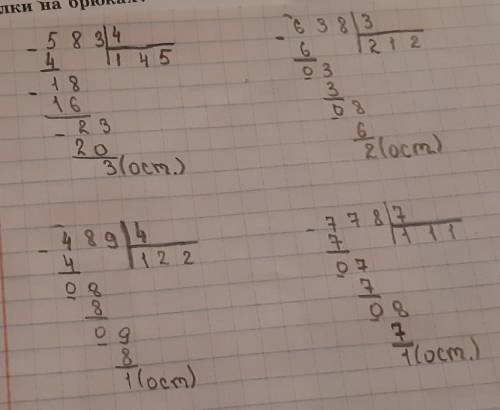 лки на брюках?
- 5 8 3 | 4
4 | 1 4 5
- 1 8
1 6
- 2 3
2 0
3 (ост.)
- 6 3 8 | 3
6 | 2 1 2
0 3
3
0 8
6
2 (ост.)
- 4 8 9 | 4
4 | 1 2 2
0 8
8
0 9
8
1 (ост)
- 7 7 8 | 7
7 | 1 1 1
0 7
7
0 8
7
1 (ост.)